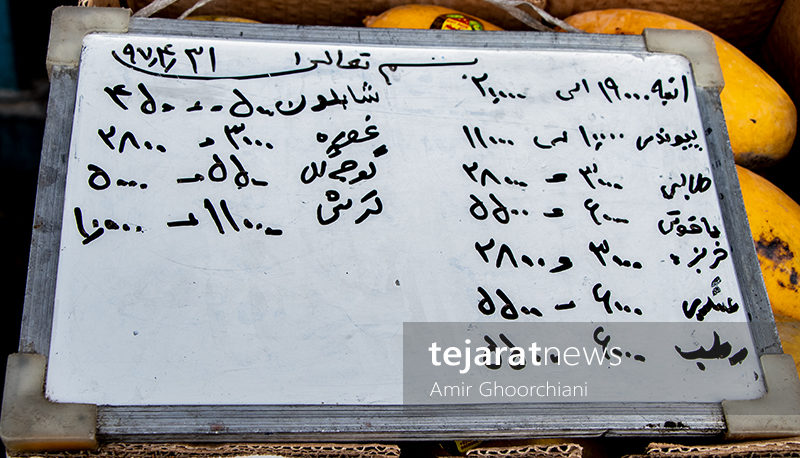 بسم تعالی ۹۷/۴/۳۱
انبه ۱۹۰۰۰ الی ۲۰۰۰۰
پیوندی ۱۰۰۰۰ الی ۱۱۰۰۰
طالبی ۳۰۰۰ و ۲۸۰۰
یاقوتی ۶۰۰۰ - ۵۵۰۰
خربزه ۳۰۰۰ و ۲۸۰۰
عسگری ۶۰۰۰ - ۵۵۰۰
رطب ۶۰۰۰ ۵۵۰۰
شابلون ۵۰۰۰ - ۴۵۰۰
غوره ۳۰۰۰ و ۲۸۰۰
گوجه ۵۵۰۰ - ۵۰۰۰
گرمی ۱۱۰۰۰ - ۱۰۰۰۰
tejaratnews
Amir Ghoorchiani